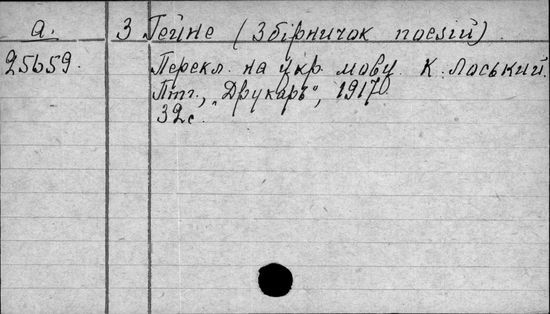 а. З Гейне (Збірничок поезій).
25659. Перекл. на укр. мову К. Лоський.
Птг., "Друкарь", 1917.
32с.